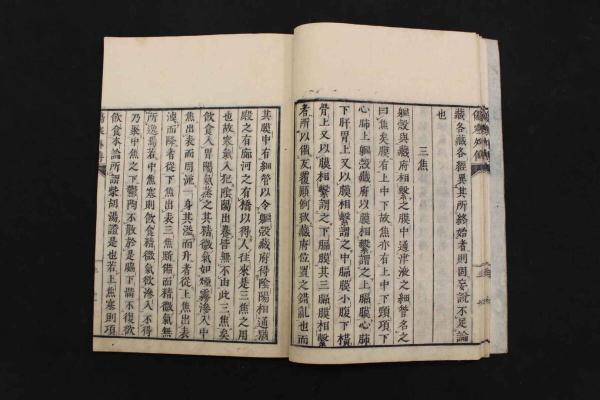 藏各藏各經異其所終始者則固妄說不足論
也
三焦
軀殼與藏府相繫之膜中通津液之細管名之
曰焦矣膜有上中下故焦亦有上中下頭項下
心肺上軀殼藏府以膜相繫謂之上膈膜心
下肝胃上又以膜相繫謂之中膈膜小腹下橫
骨上又以膜相繫謂之下膈膜其三膈膜相繫
者所以備反覆顛倒致藏府位置之錯亂也而
其膜中有細管以令軀殼藏府得陰陽相通猶
殿之有廊河之有橋以得人往來是三焦之用
也故寒氣入犯陰陽出表皆無不由此三焦矣
飲食入胃陽氣蒸之其精微氣如煙霧滲入中
焦出表而周流一身其溢而升者從上焦出表
流而降者從下焦出表三焦斷備而精微氣無
所逸焉若中焦塞則飲食精微氣欲滲入不得
乃聚中焦之下鬱陶不散於是膈下滿不復欲
飲食本論所謂繫胡湯證是也若上焦塞則項